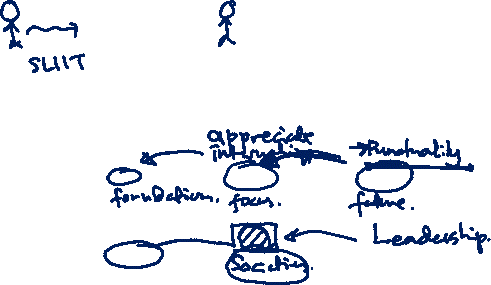 SLIIT
appreciate
→ Punctuality
foundation. focus. future.
Leadership.
Societies.